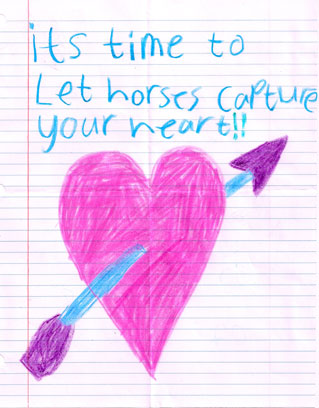 its time to
Let horses capture
your heart!!